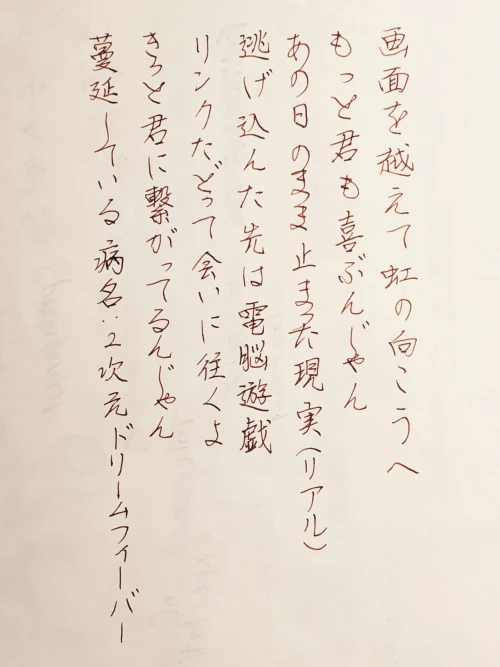 画面を越えて虹の向こうへ
もっと君も喜ぶんじゃん
あの日のまま止まった現実(リアル)
逃げ込んだ先は電脳遊戯
リンクたどって会いに往くよ
きっと君に繋がってるんじゃん
蔓延している病名:2次元ドリームフィーバー